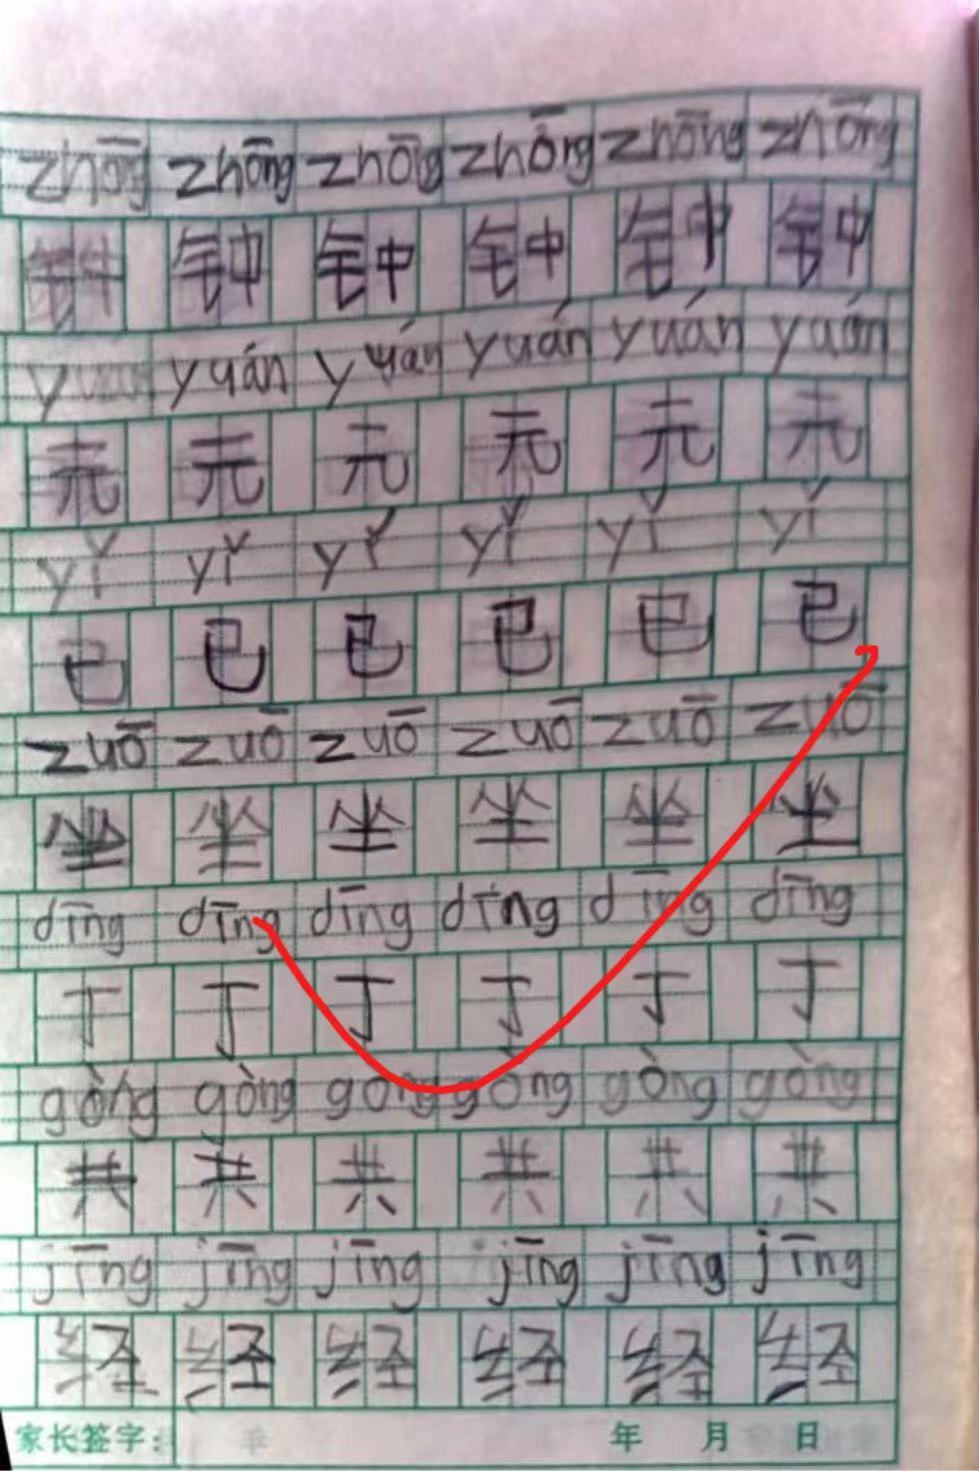 zhōng zhōng zhōng zhōng zhōng zhōng
钟 钟 钟 钟 钟 钟
yuán yuán yuán yuán yuán yuán
元 元 元 元 元 元
yǐ yǐ yǐ yǐ yǐ yǐ
已 已 已 已 已 已
zuō zuō zuō zuō zuō zuō
坐 坐 坐 坐 坐 坐
dīng dīng dīng dīng dīng dīng
丁 丁 丁 丁 丁 丁
gòng gòng gòng gòng gòng gòng
共 共 共 共 共 共
jīng jīng jīng jīng jīng jīng
经 经 经 经 经 经
家长签字： 年 月 日